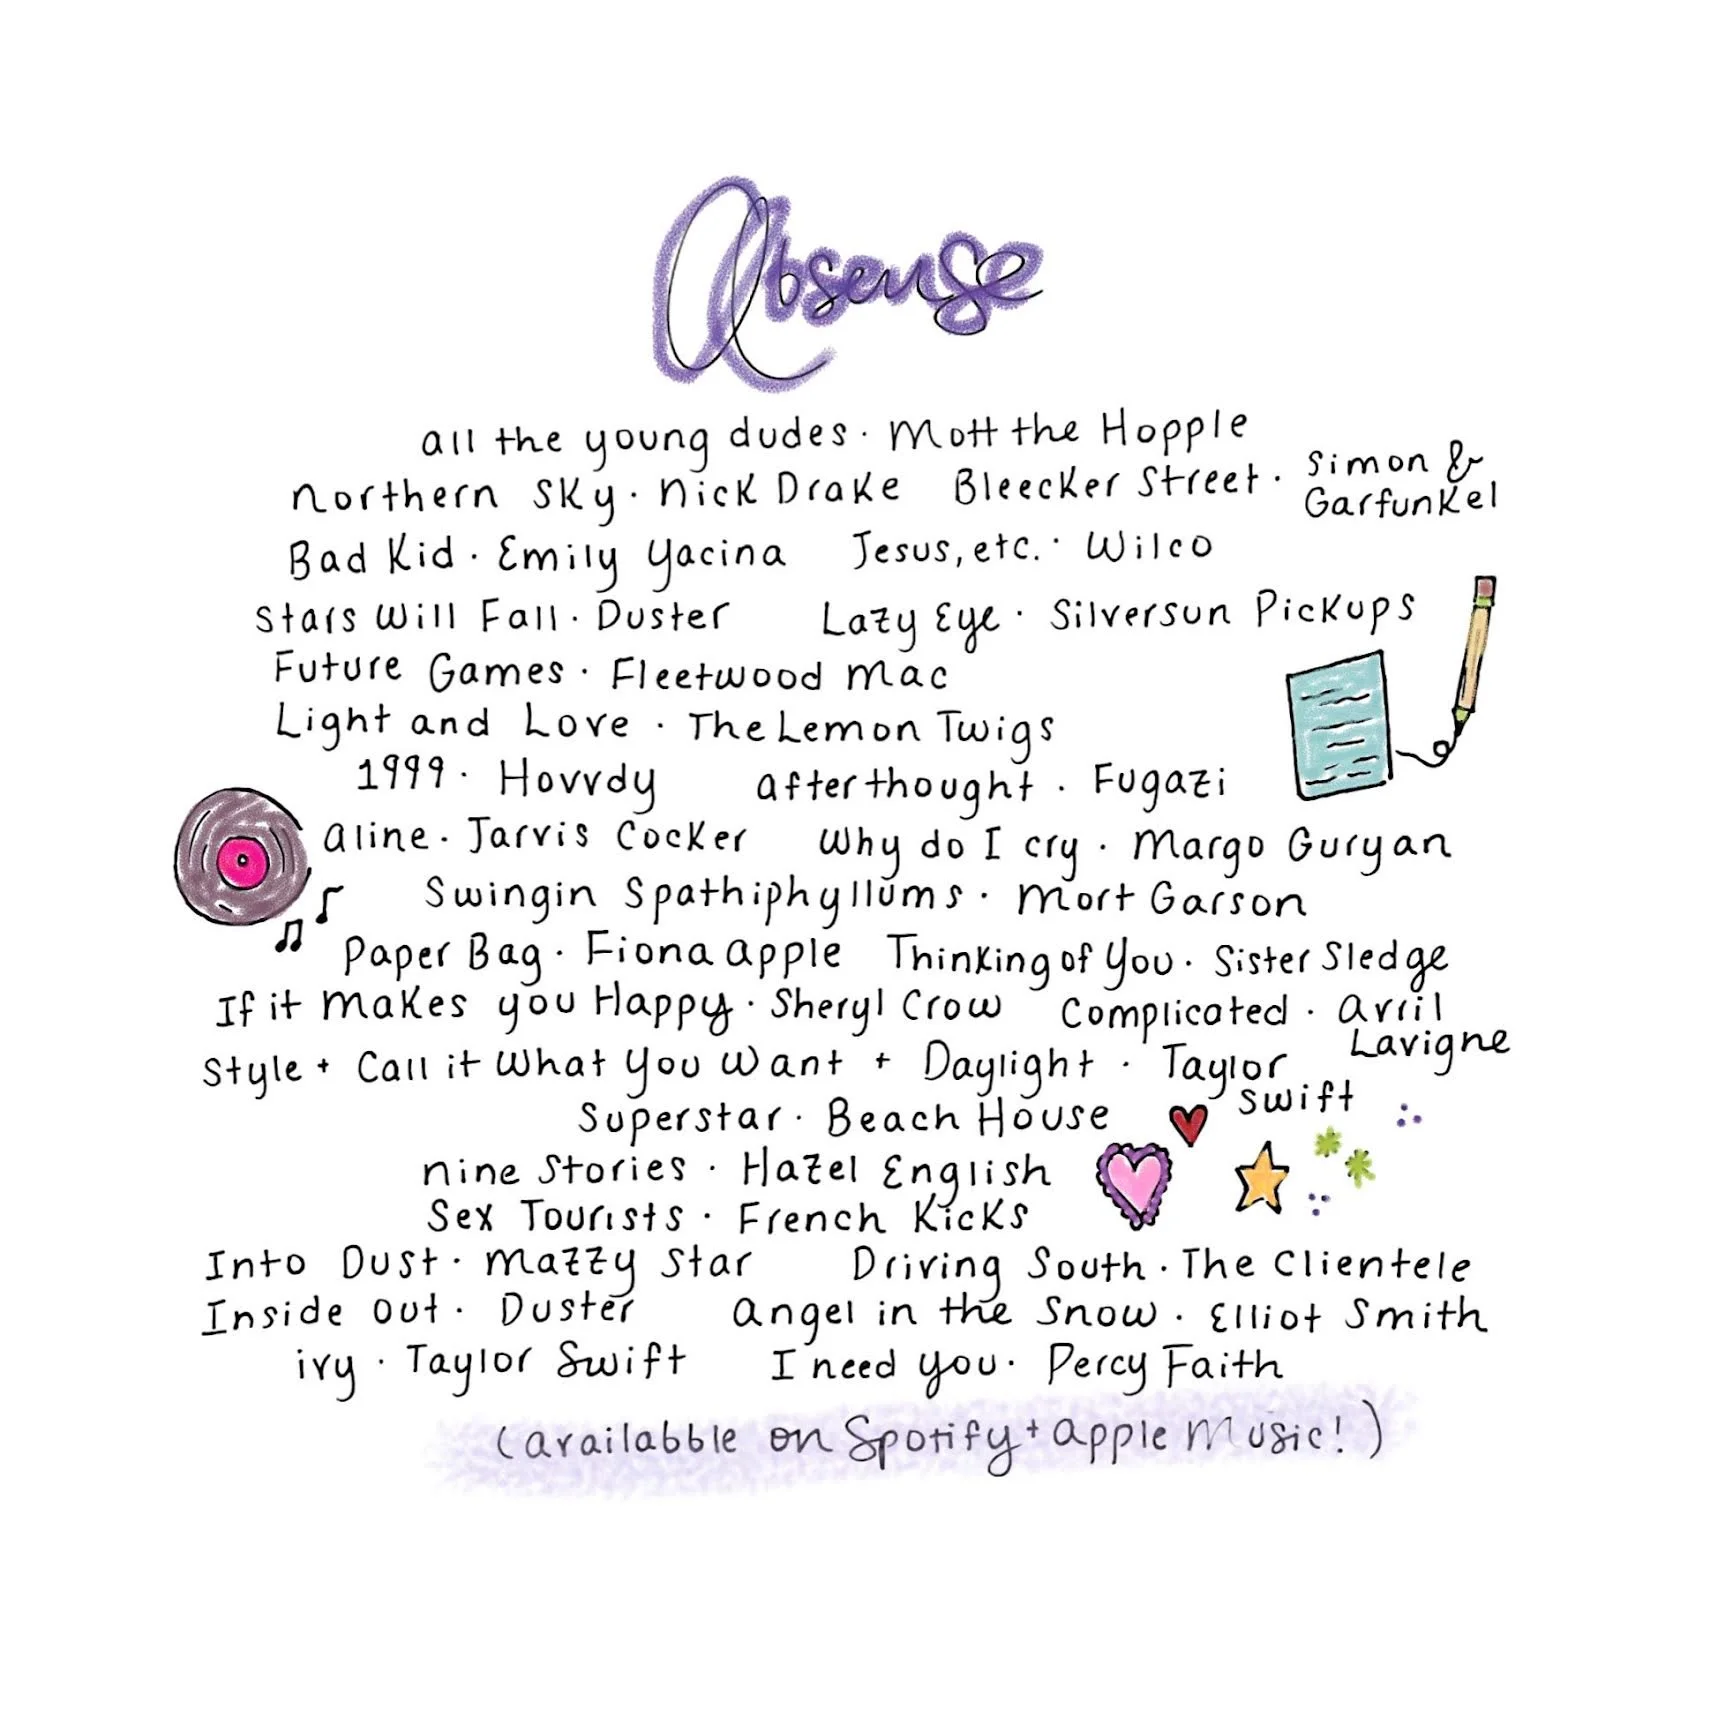 Absense
all the young dudes · Mott the Hopple
Northern Sky · Nick Drake Bleecker Street · Simon & Garfunkel
Bad Kid · Emily Yacina Jesus, etc. · Wilco
Stars Will Fall · Duster Lazy Eye · Silversun Pickups
Future Games · Fleetwood Mac
Light and Love · The Lemon Twigs
1999 · Hovvdy afterthought · Fugazi
aline · Jarvis Cocker Why do I cry · Margo Guryan
Swingin Spathiphyllums · Mort Garson
Paper Bag · Fiona apple Thinking of You · Sister Sledge
If it makes you Happy · Sheryl Crow Complicated · avril Lavigne
Style + Call it What You Want + Daylight · Taylor Swift
Superstar · Beach House
nine Stories · Hazel English
Sex Tourists · French Kicks
Into Dust · Mazzy Star Driving South · The Clientele
Inside out · Duster angel in the Snow · Elliot Smith
ivy · Taylor Swift I need you · Percy Faith
(availabble on Spotify + apple Music!)